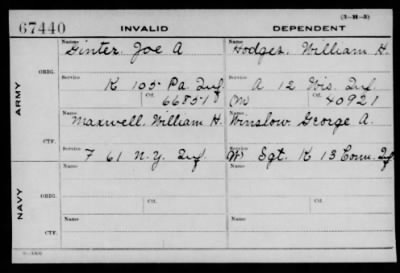 (3-H-3)
67440 INVALID DEPENDENT
Name: Ginter, Joe A Name Hodges, William H.
ORIG. Service K 105 Pa. Inf Service A 12 Wis. Inf
Ctf. 66851 (M) Ctf. 40921
ARMY
Name Maxwell, William H. Name Winslow, George A.
CTF. Service F 61 N.Y. Inf. Service (W) Sgt. K 13 Conn. Inf
Name Name
ORIG. Service Ctf. Service Ctf.
NAVY
Name Name
CTF. Service Service